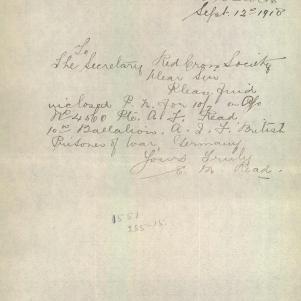 Sept. 12th 1918
To
The Secretary Red Cross Society
Dear Sir
Please find
inclosed P. N. for 10/- on a/c
No 4500 Pte. A. L. Read
10th Battalion. A. I. F. British
Prisoner of War, Germany
Yours Truly
E. Read.
1551
255-15.